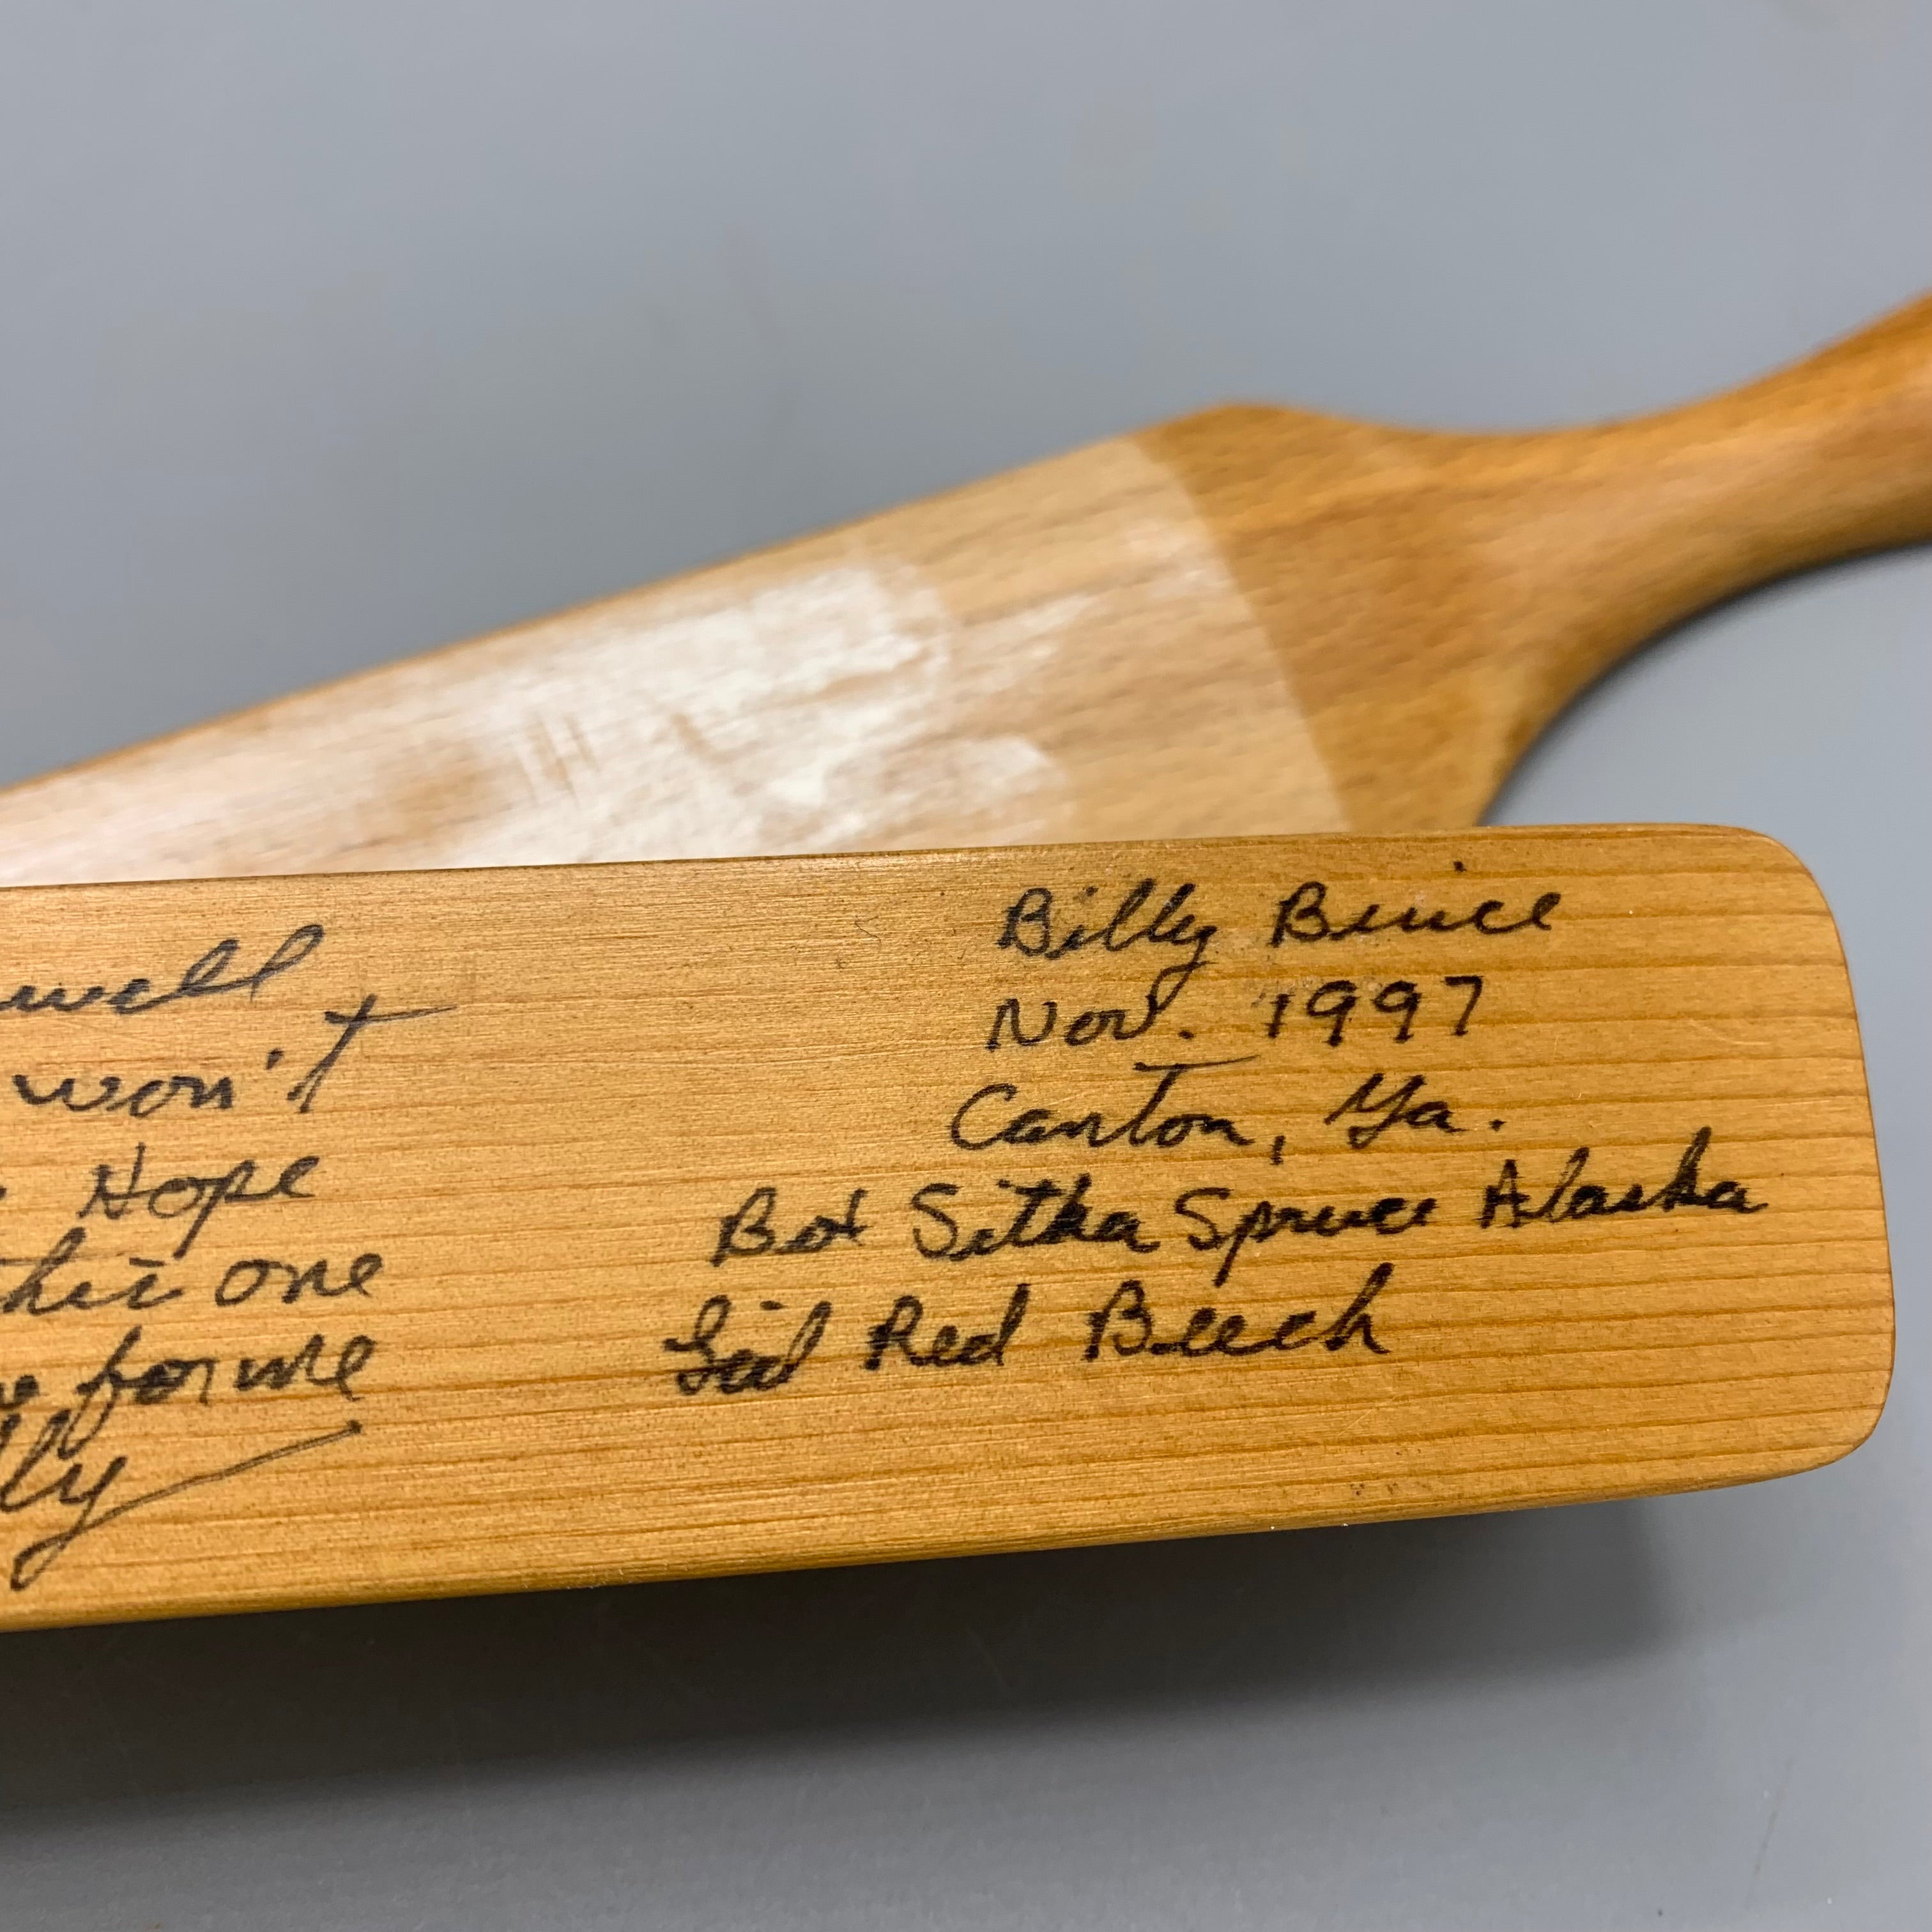 won't
Hope
one
for me
Billy Bruice
Nov. 1997
Canton, Ga.
Box Sitka Spruce Alaska
Lid Red Beech